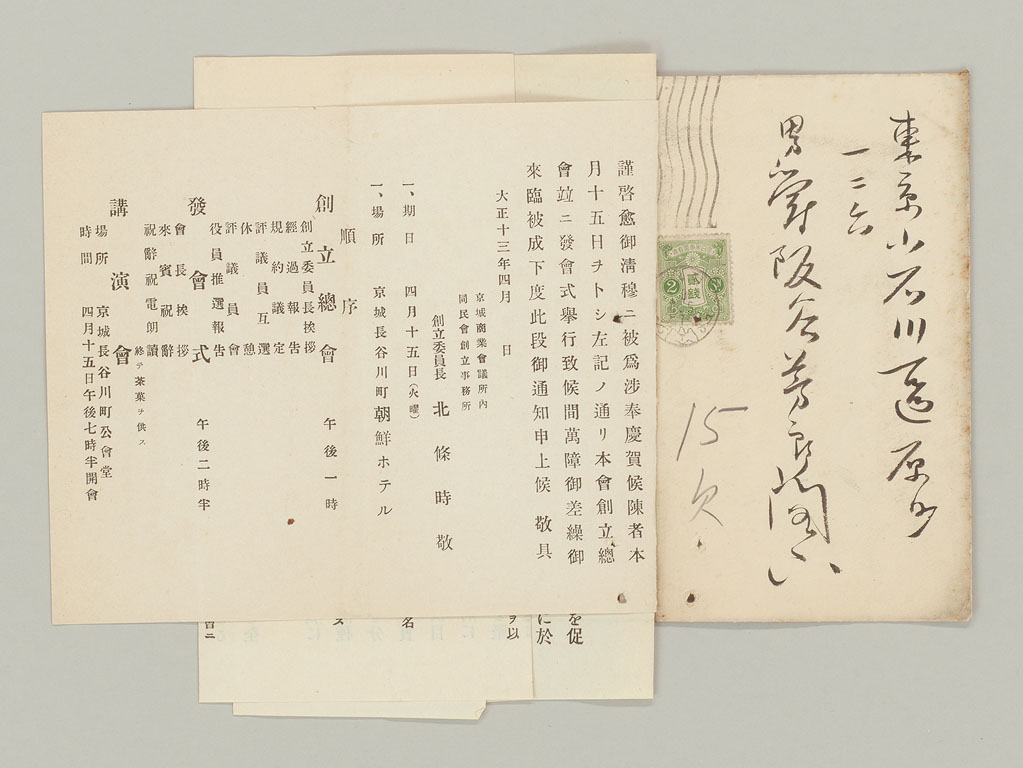 東京小石川區原町
一二六
男爵阪谷芳郎閣下
15
欠
貳錢
2
2
謹啓愈御淸穆ニ被爲涉奉慶賀候陳者本
月十五日ヲトシ左記ノ通リ本會創立總
會竝ニ發會式擧行致候間萬障御差繰御
來臨被成下度此段御通知申上候 敬具
大正十三年四月 日
京城商業會議所內
同民會創立事務所
創立委員長 北條時敬
一、期日 四月十五日(火曜)
一、場所 京城長谷川町朝鮮ホテル
順序
創立總會 午後一時
創立委員長挨拶
經過報告
規約議定
評議員互選
休憩
評議員會
役員推選報告
發會式 午後二時半
會長挨拶
來賓祝辭
祝辭祝電朗讀
終テ茶菓ヲ供ス
講演會
場所 京城長谷川町公會堂
時間 四月十五日午後七時半開會
を促
に於
ヲ以
名